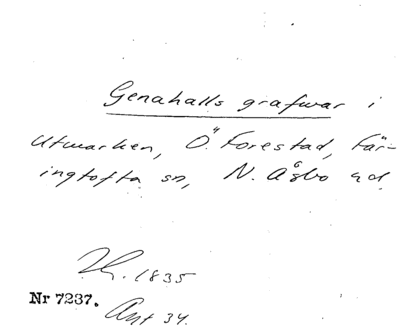 Genahalls grafwar i
Utmarken, Ö. Forestad, Fär-
ingtofta sn, N. Åsbo hd.
Th. 1835
Nr 7237.
Ant 34.